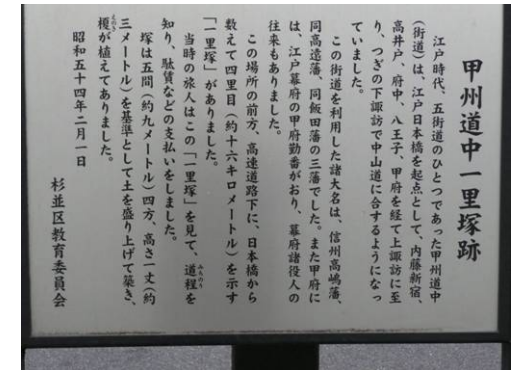 甲州道中一里塚跡
江戸時代、五街道のひとつであった甲州道中
(街道)は、江戸日本橋を起点として、内藤新宿、
高井戸、府中、八王子、甲府を経て上諏訪に至
り、つぎの下諏訪で中山道に合するようになっ
ていました。
この街道を利用した諸大名は、信州高嶋藩、
同高遠藩、同飯田藩の三藩でした。また甲府に
は、江戸幕府の甲府勤番がおり、幕府諸役人の
往来もありました。
この場所の前方、高速道路下に、日本橋から
数えて四里目(約十六キロメートル)を示す
「一里塚」がありました。
当時の旅人はこの「一里塚」を見て、道程を
知り、駄賃などの支払いをしました。
塚は五間(約九メートル)四方、高さ一丈(約
三メートル)を基準として土を盛り上げて築き、
榎が植えてありました。
昭和五十四年二月一日
杉並区教育委員会